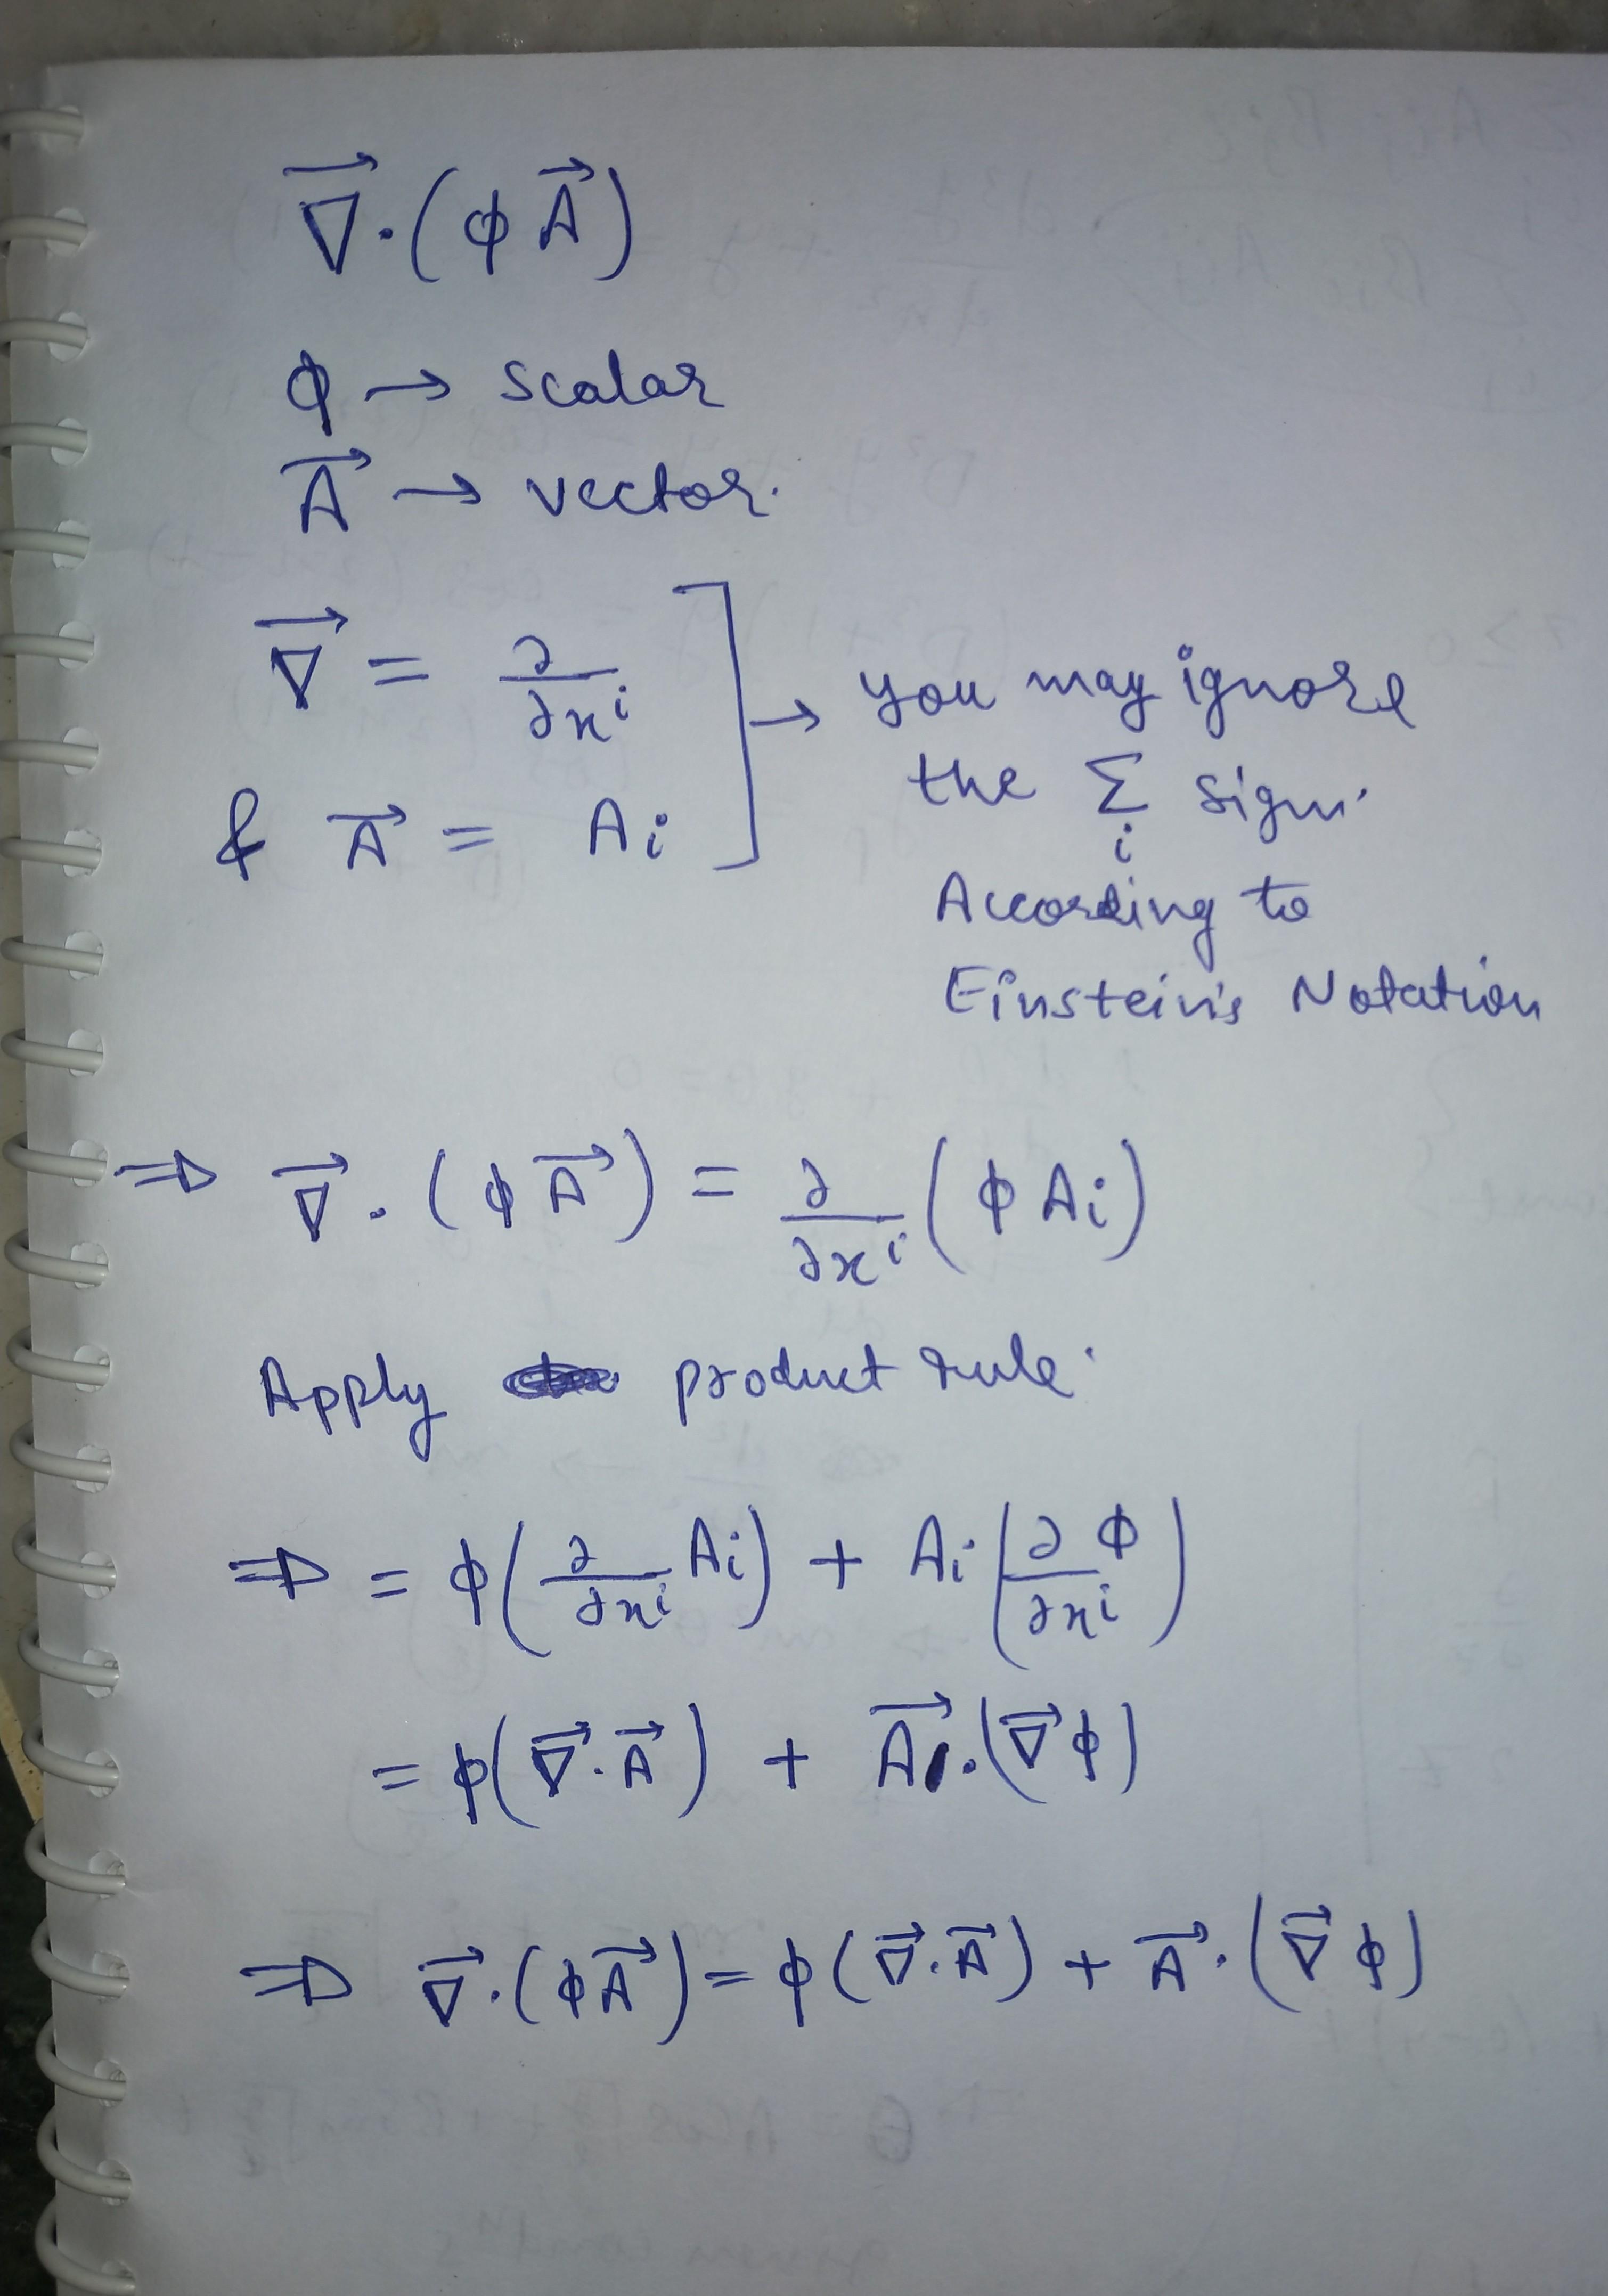 ∇⃗·(ϕA⃗)
ϕ → scalar
A⃗ → vector.
∇⃗ = ∂/∂xⁱ
& A⃗ = Aᵢ
] → you may ignore
the Σᵢ sign.
According to
Einstein's Notation
⇒ ∇⃗·(ϕA⃗) = ∂/∂xⁱ (ϕAᵢ)
Apply product rule.
⇒ = ϕ(∂/∂xⁱ Aᵢ) + Aᵢ(∂ϕ/∂xⁱ)
= ϕ(∇⃗·A⃗) + A⃗·(∇⃗ϕ)
⇒ ∇⃗·(ϕA⃗) = ϕ(∇⃗·A⃗) + A⃗·(∇⃗ϕ)